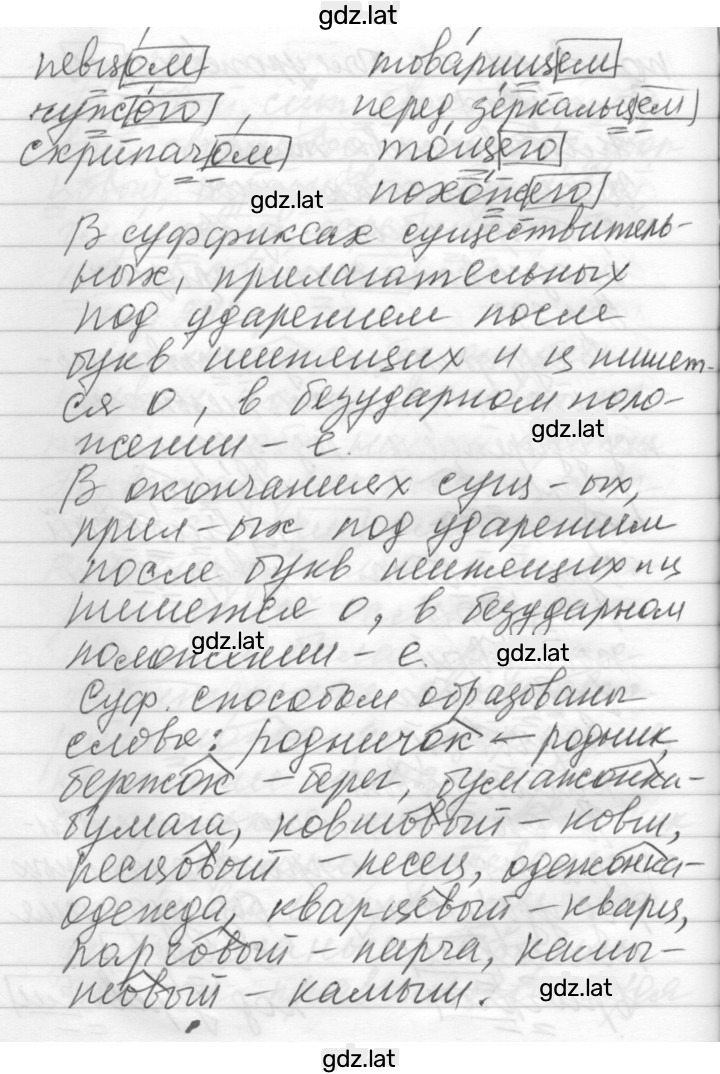 gdz.lat
певцом товарищем
чужого, перед зеркальцем
скрипачом тощего
gdz.lat похожего
В суффиксах существитель-
ных, прилагательных
под ударением после
букв шипящих и ц пишет-
ся о, в безударном поло-
жении - е. gdz.lat
В окончаниях сущ-ых,
прил-ых под ударением
после букв шипящих и ц
пишется о, в безударном
положении - е.
gdz.lat gdz.lat
Суф. способом образованы
слова: родничок - родник,
бережок - берег, бумажонка-
бумага, ковшовый - ковш,
песцовый - песец, одежонка-
одежда, кварцевый - кварц,
парчовый - парча, камы-
шовый - камыш. gdz.lat
gdz.lat